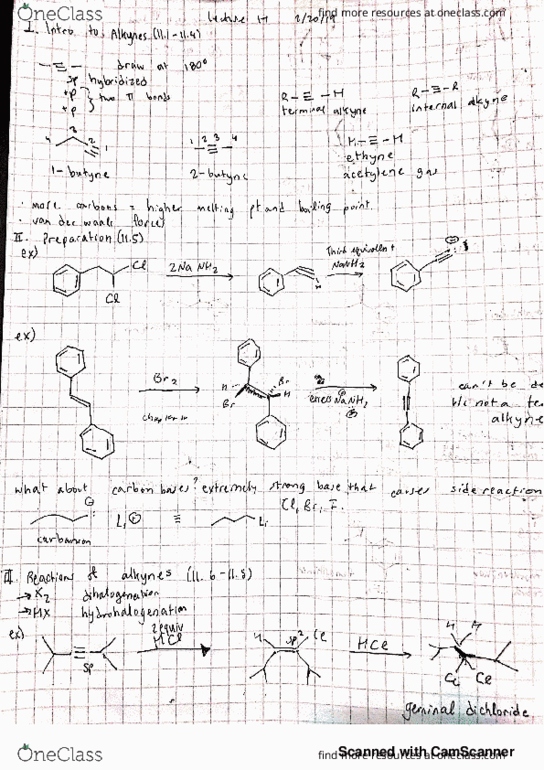 OneClass
find more resources at oneclass.com
Lecture 17 2/20/19
I. Intro to Alkynes (11.1-11.4)
-≡- draw at 180°
sp hybridized
+p
+p } two π bonds
R-≡-H
terminal alkyne
R-≡-R
internal alkyne
4 3 2 1
1-butyne
1 2 3 4
2-butyne
H-≡-H
ethyne
acetylene gas
· more carbons = higher melting pt and boiling point.
· van der waals force)
II. Preparation (11.5)
ex)
Cl
Cl
2Na NH2
H
Third equivalent
NaNH2
ex)
Br2
H
Br
Br
H
excess NaNH2
can't be de
b/c not a te
alkyne
what about carbon bases? extremely strong base that causes side reaction
Cl, Br, I.
Li ⊕ ≡ Li
carbanion
III. Reactions of alkynes (11.6-11.8)
→ X2 dihalogenation
→ HX hydrohalogenation
ex)
sp
2 equiv
HCl
H sp2 Cl
HCl
H H
Cl Cl
geminal dichloride
OneClass
find more resources at oneclass.com
Scanned with CamScanner